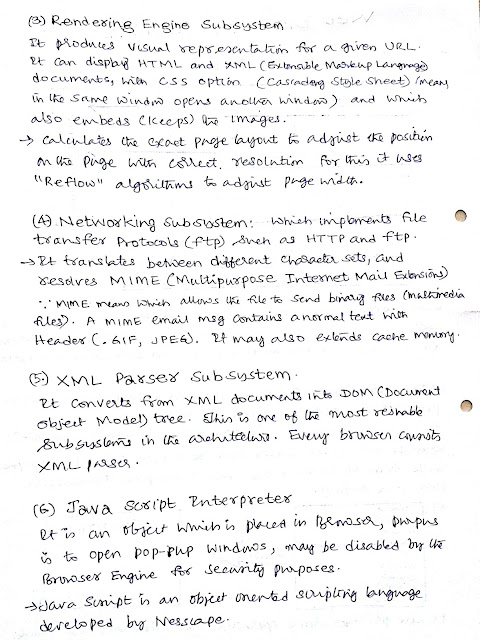 (3) Rendering Engine Subsystem.
It produces visual representation for a given URL.
It can display HTML and XML (Extensible Markup Language)
documents, with CSS option (Cascading Style Sheet) (means
in the same window opens another window) and which
also embeds (keeps) the images.
→ Calculates the exact page layout to adjust the position
on the page with correct resolution for this it uses
"Reflow" algorithms to adjust page width.
(4) Networking Subsystem: which implments file
transfer Protocols (ftp) such as HTTP and ftp.
→ It translates between different character sets, and
resolves MIME (Multipurpose Internet Mail Extensions)
∵ MIME means which allows the file to send binary files (multimedia
files). A MIME email msg contains a normal text with
Header (.GIF, JPEG). It may also extends cache memory.
(5) XML Parser Subsystem.
It converts from XML documents into DOM (Document
Object Model) tree. This is one of the most reusable
Subsystems in the architecture. Every browser consists
XML parser.
(6) Java Script Interpreter
It is an object which is placed in Browser, purpus
is to open pop-pup windows, may be disabled by the
Browser Engine for security purposes.
→ Java Script is an object oriented scripting language
developed by Nesscape.